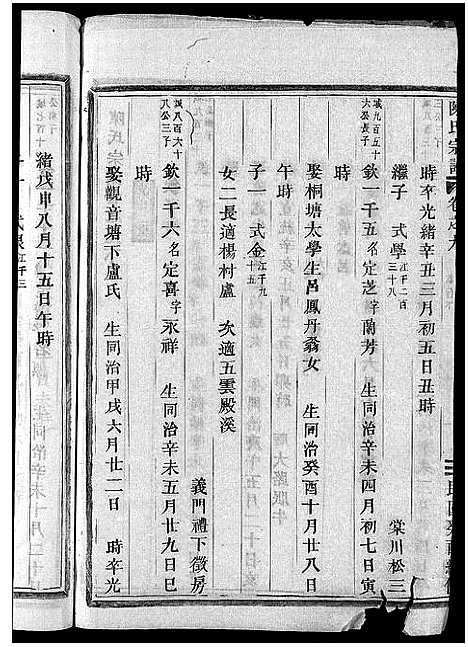 陳氏宗譜 卷之九
時卒光緒辛丑三月初五日丑時
繼子 式學 江千二百三十八 棠川松三
城九百五十六公長子 欽一千五 名定芝 字蘭芳 生同治辛未四月初七日寅
時
娶桐塘太學生呂鳳丹翁女 生同治癸酉十月廿八日
午時
子一 式金 江千九
女二長適楊村盧 次適五雲殿溪
義門禮下徵房
城八百六十八公三子 欽一千六 名定喜 字永祥 生同治辛未五月廿九日巳
時
娶觀音塘下盧氏 生同治甲戌六月廿二日 時卒光
緒戊申八月十五日午時